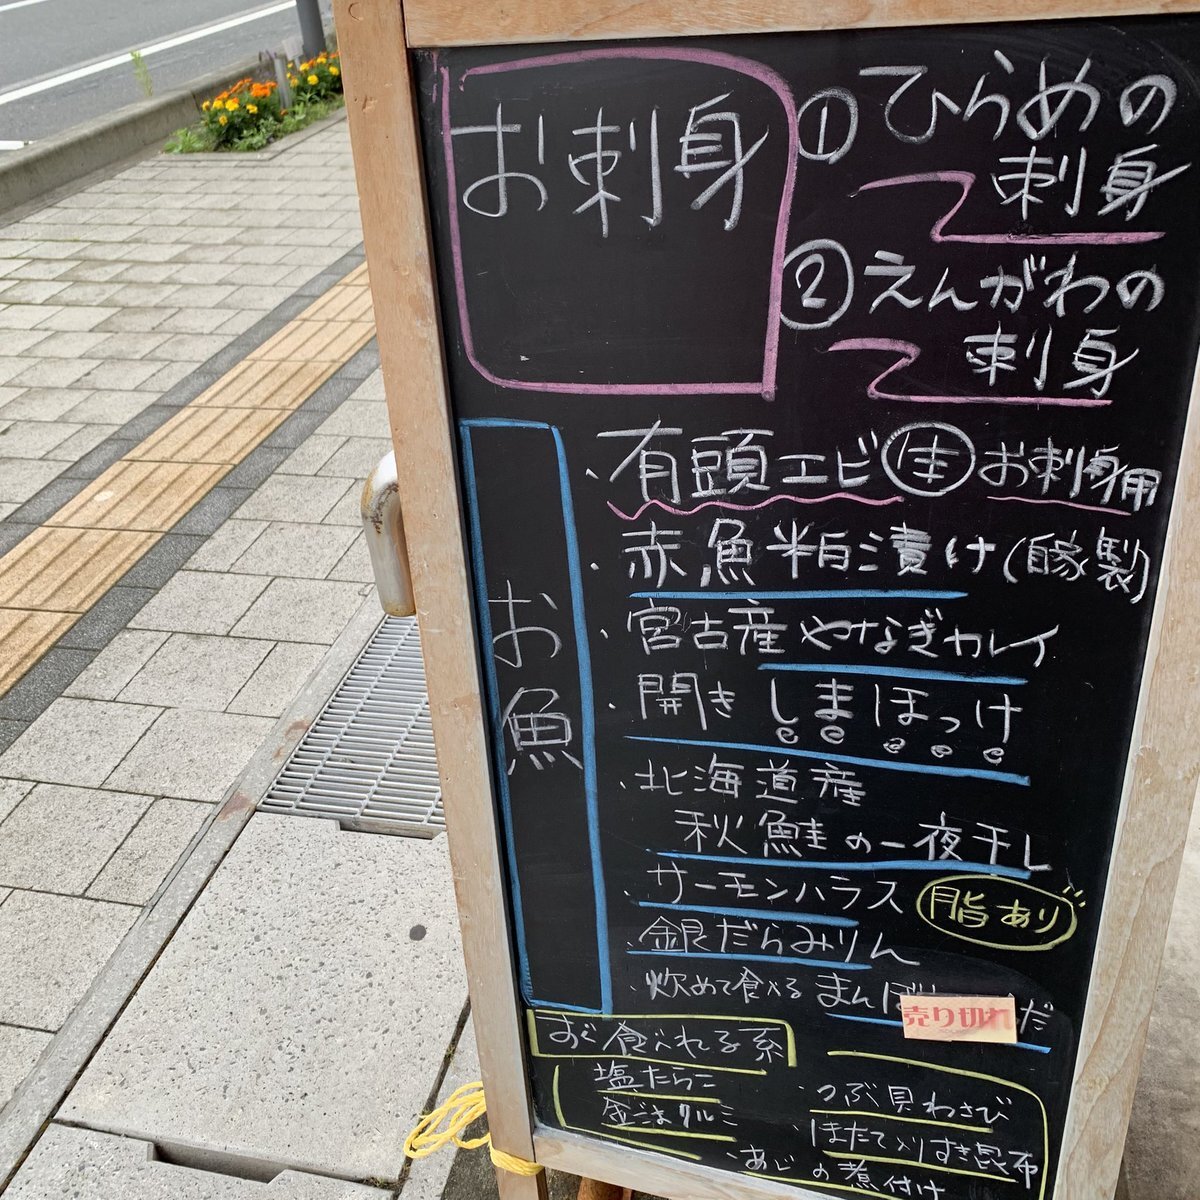 お刺身
① ひらめの
刺身
② えんがわの
刺身
お魚
、有頭エビ 生 お刺身用
・赤魚粕漬け(自家製)
・宮古産やなぎカレイ
・開き しまほっけ
・北海道産
秋鮭の一夜干し
・サーモンハラス 脂あり
・銀だらみりん
・炒めて食べる まんぼ
売り切れ
だ
すぐ食べれる系
塩たらこ
金ごまクルミ
・つぶ貝わさび
・ほたて入りすき昆布
・あじの煮付け